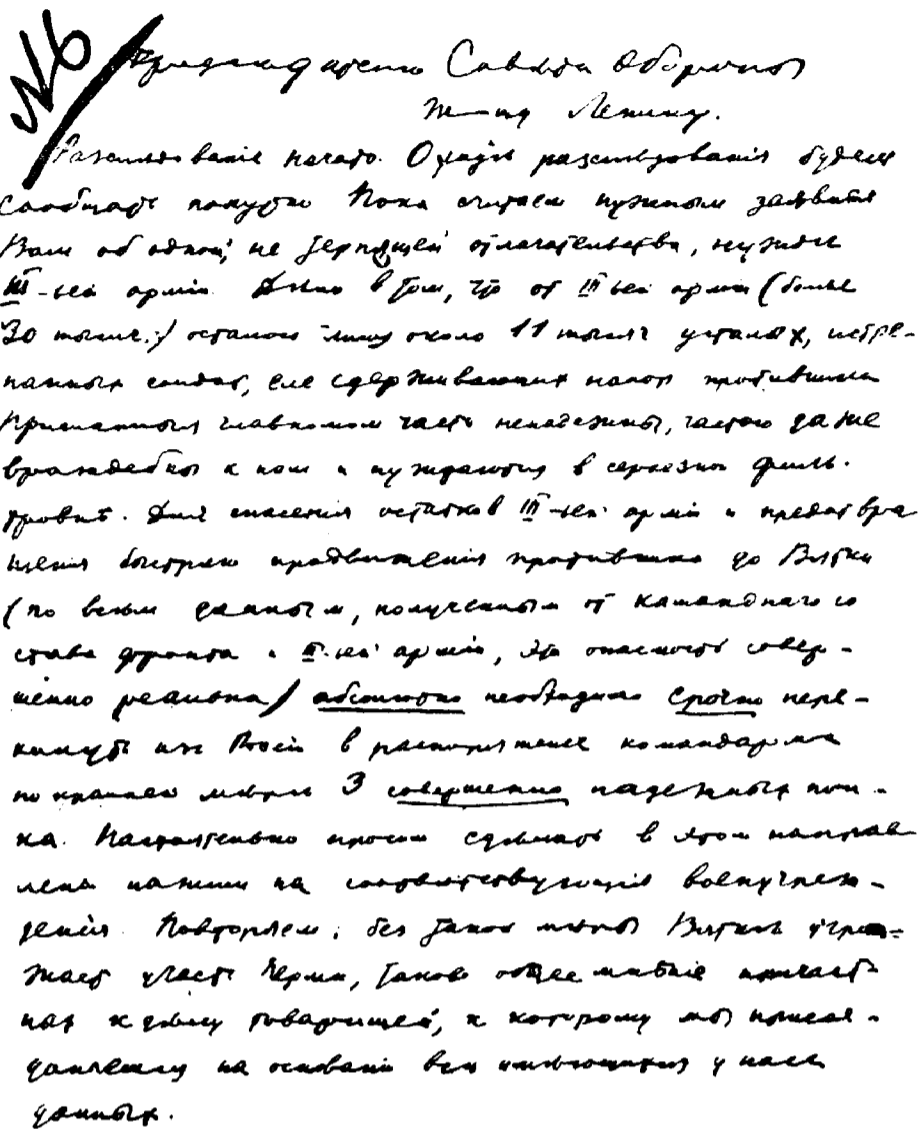 №6
Председателю Совета Обороны
т–щу Ленину.
Разследование начато. О ходе разследования будем
сообщать попутно Пока считаем нужным заявить
Вам об одной, не терпящей отлагательства, нужде
III-ьей армии. Дело в том, что от III ьей армии (более
30 тысяч.) осталось лишь около 11 тысяч усталых, истре-
панных солдат, еле сдерживающих напор противника
Присланные главкомом части ненадежны, частью даже
враждебны к нам и нуждаются в серьезной филь-
тровке. Для спасения остатков III-ьей армии и предотвра
щения быстрого продвижения противника до Вятки
(по всем данным, полученным от командного со
става фронта и III-ьей армии, эта опасность совер-
шенно реальна) абсолютно необходимо срочно пере-
кинуть из России в распоряжение командарма
по крайней мере 3 совершенно надежных пол-
ка. Настоятельно просим сделать в этом направ
лении нажим на соответствующия военучреж-
дения Повторяем: без такой меры Вятке угро-
жает участь Перми, таково общее мнение причаст-
ных к делу товарищей, к которому мы присое-
диняемся на основании всех имеющихся у нас
данных.